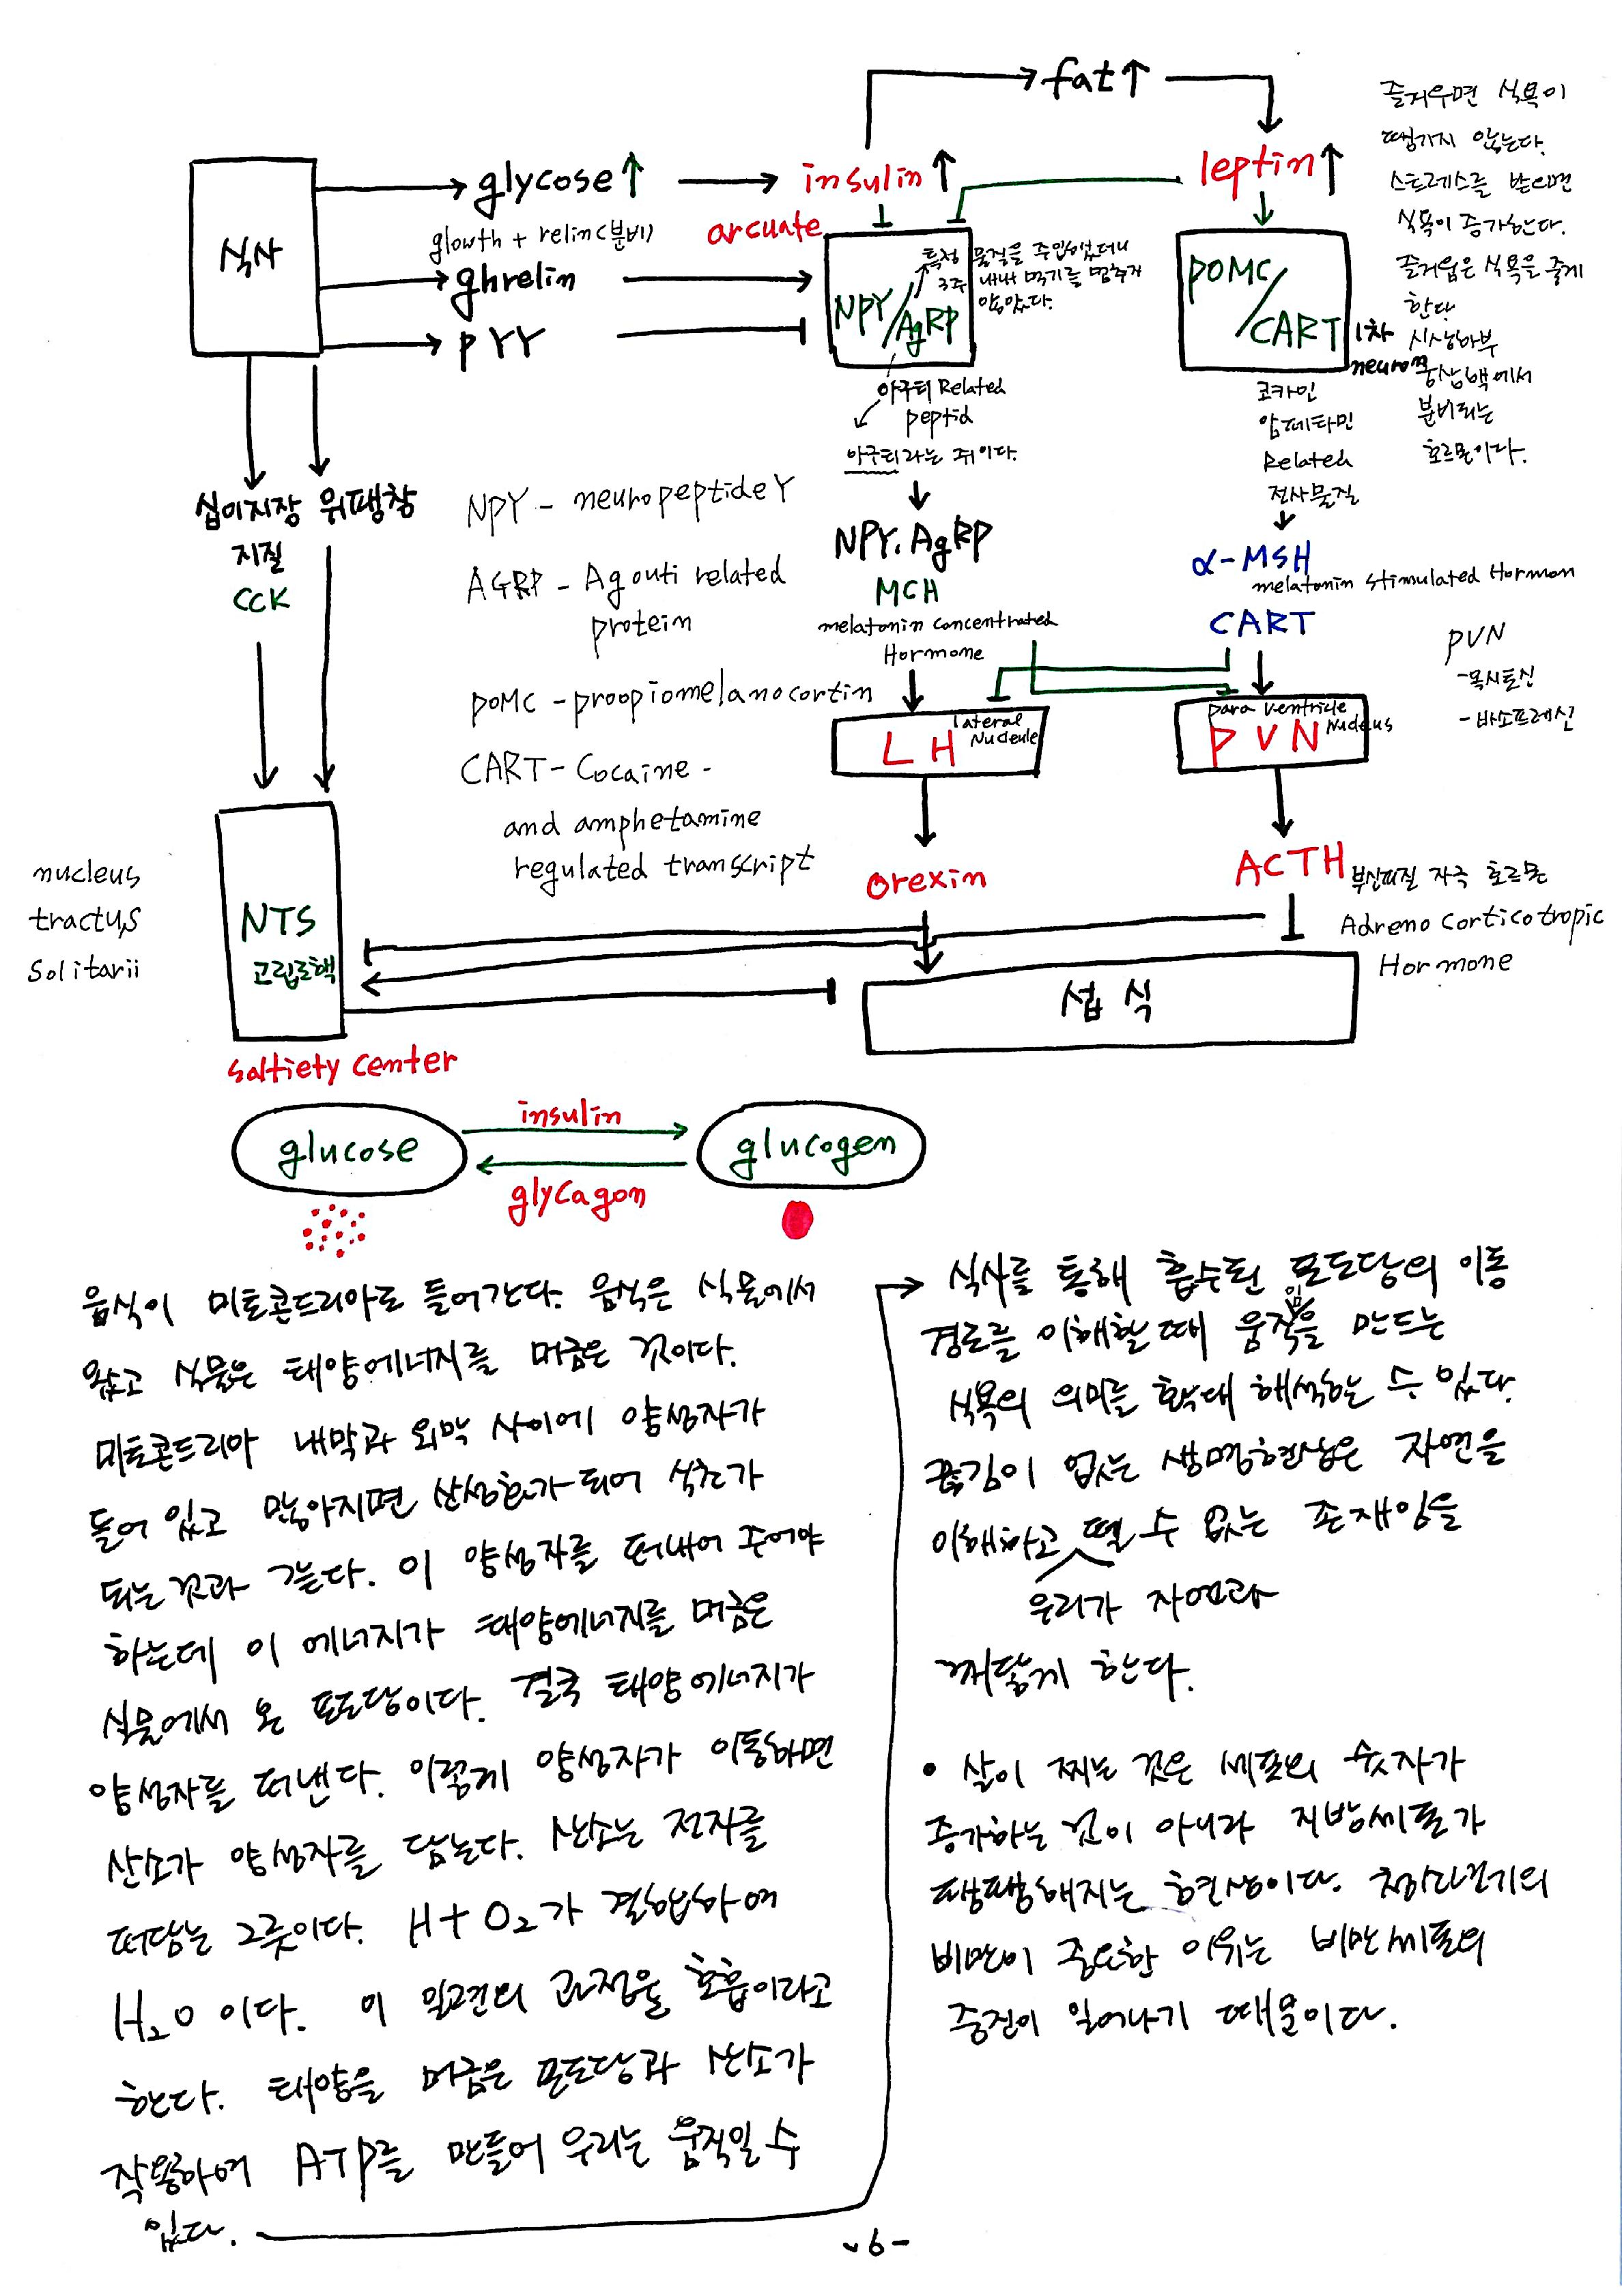 fat↑
식사
glycose↑
insulin↑
leptin↑
즐거우면 식욕이
땡기지 않는다.
스트레스를 받으면
식욕이 증가한다.
즐거움은 식욕을 줄게
한다
glowth + relin(분비)
arcuate
ghrelin
PYY
NPY/AgRP
특정 물질을 주입했더니
3주 내내 먹기를 멈추지
않았다.
POMC/CART
1차
neuron
시상하부
궁상핵에서
분비되는
호르몬이다.
아구티 Related
peptid
아구티라는 쥐이다.
코카인
암페타민
Related
전사물질
십이지장 위팽창
지질
CCK
NPY - neuropeptide Y
AGRP - Agouti related
protein
POMC - proopiomelanocortin
CART - Cocaine -
and amphetamine
regulated transcript
NPY, AgRP
MCH
melatonin concentrated
Hormone
α-MSH
melatonin stimulated Hormon
CART
PVN
-옥시토신
-바소프레신
LH
lateral
Nucleule
para ventricle
PVN
Nucleus
orexin
ACTH
부신피질 자극 호르몬
Adreno corticotropic
Hormone
nucleus
tractus
Solitarii
NTS
고립로핵
섭식
saltiety center
glucose
insulin
glycagon
glucogen
음식이 미토콘드리아로 들어간다. 음식은 식물에서
왔고 식물은 태양에너지를 머금은 것이다.
미토콘드리아 내막과 외막 사이에 양성자가
들어 있고 많아지면 산성화가 되어 식초가
되는 것과 같다. 이 양성자를 떠내어 주어야
하는데 이 에너지가 태양에너지를 머금은
식물에서 온 포도당이다. 결국 태양에너지가
양성자를 떠낸다. 이렇게 양성자가 이동하면
산소가 양성자를 담는다. 산소는 전자를
떠담는 그릇이다. H+O₂가 결합하여
H₂O이다. 이 일련의 과정을 호흡이라고
한다. 태양을 머금은 포도당과 산소가
작용하여 ATP를 만들어 우리는 움직일 수
있다.
식사를 통해 흡수된 포도당의 이동
경로를 이해할 때 움직임을 만드는
식욕의 의미를 확대 해석하는 수 있다.
끊김이 없는 생명현상은 자연을
이해하고 우리가 자연과 뗄 수 없는 존재임을
깨닫게 한다.
• 살이 찌는 것은 세포의 숫자가
증가하는 것이 아니라 지방세포가
땡땡해지는 현상이다. 청소년기의
비만이 중요한 이유는 비만세포의
증진이 일어나기 때문이다.
-6-